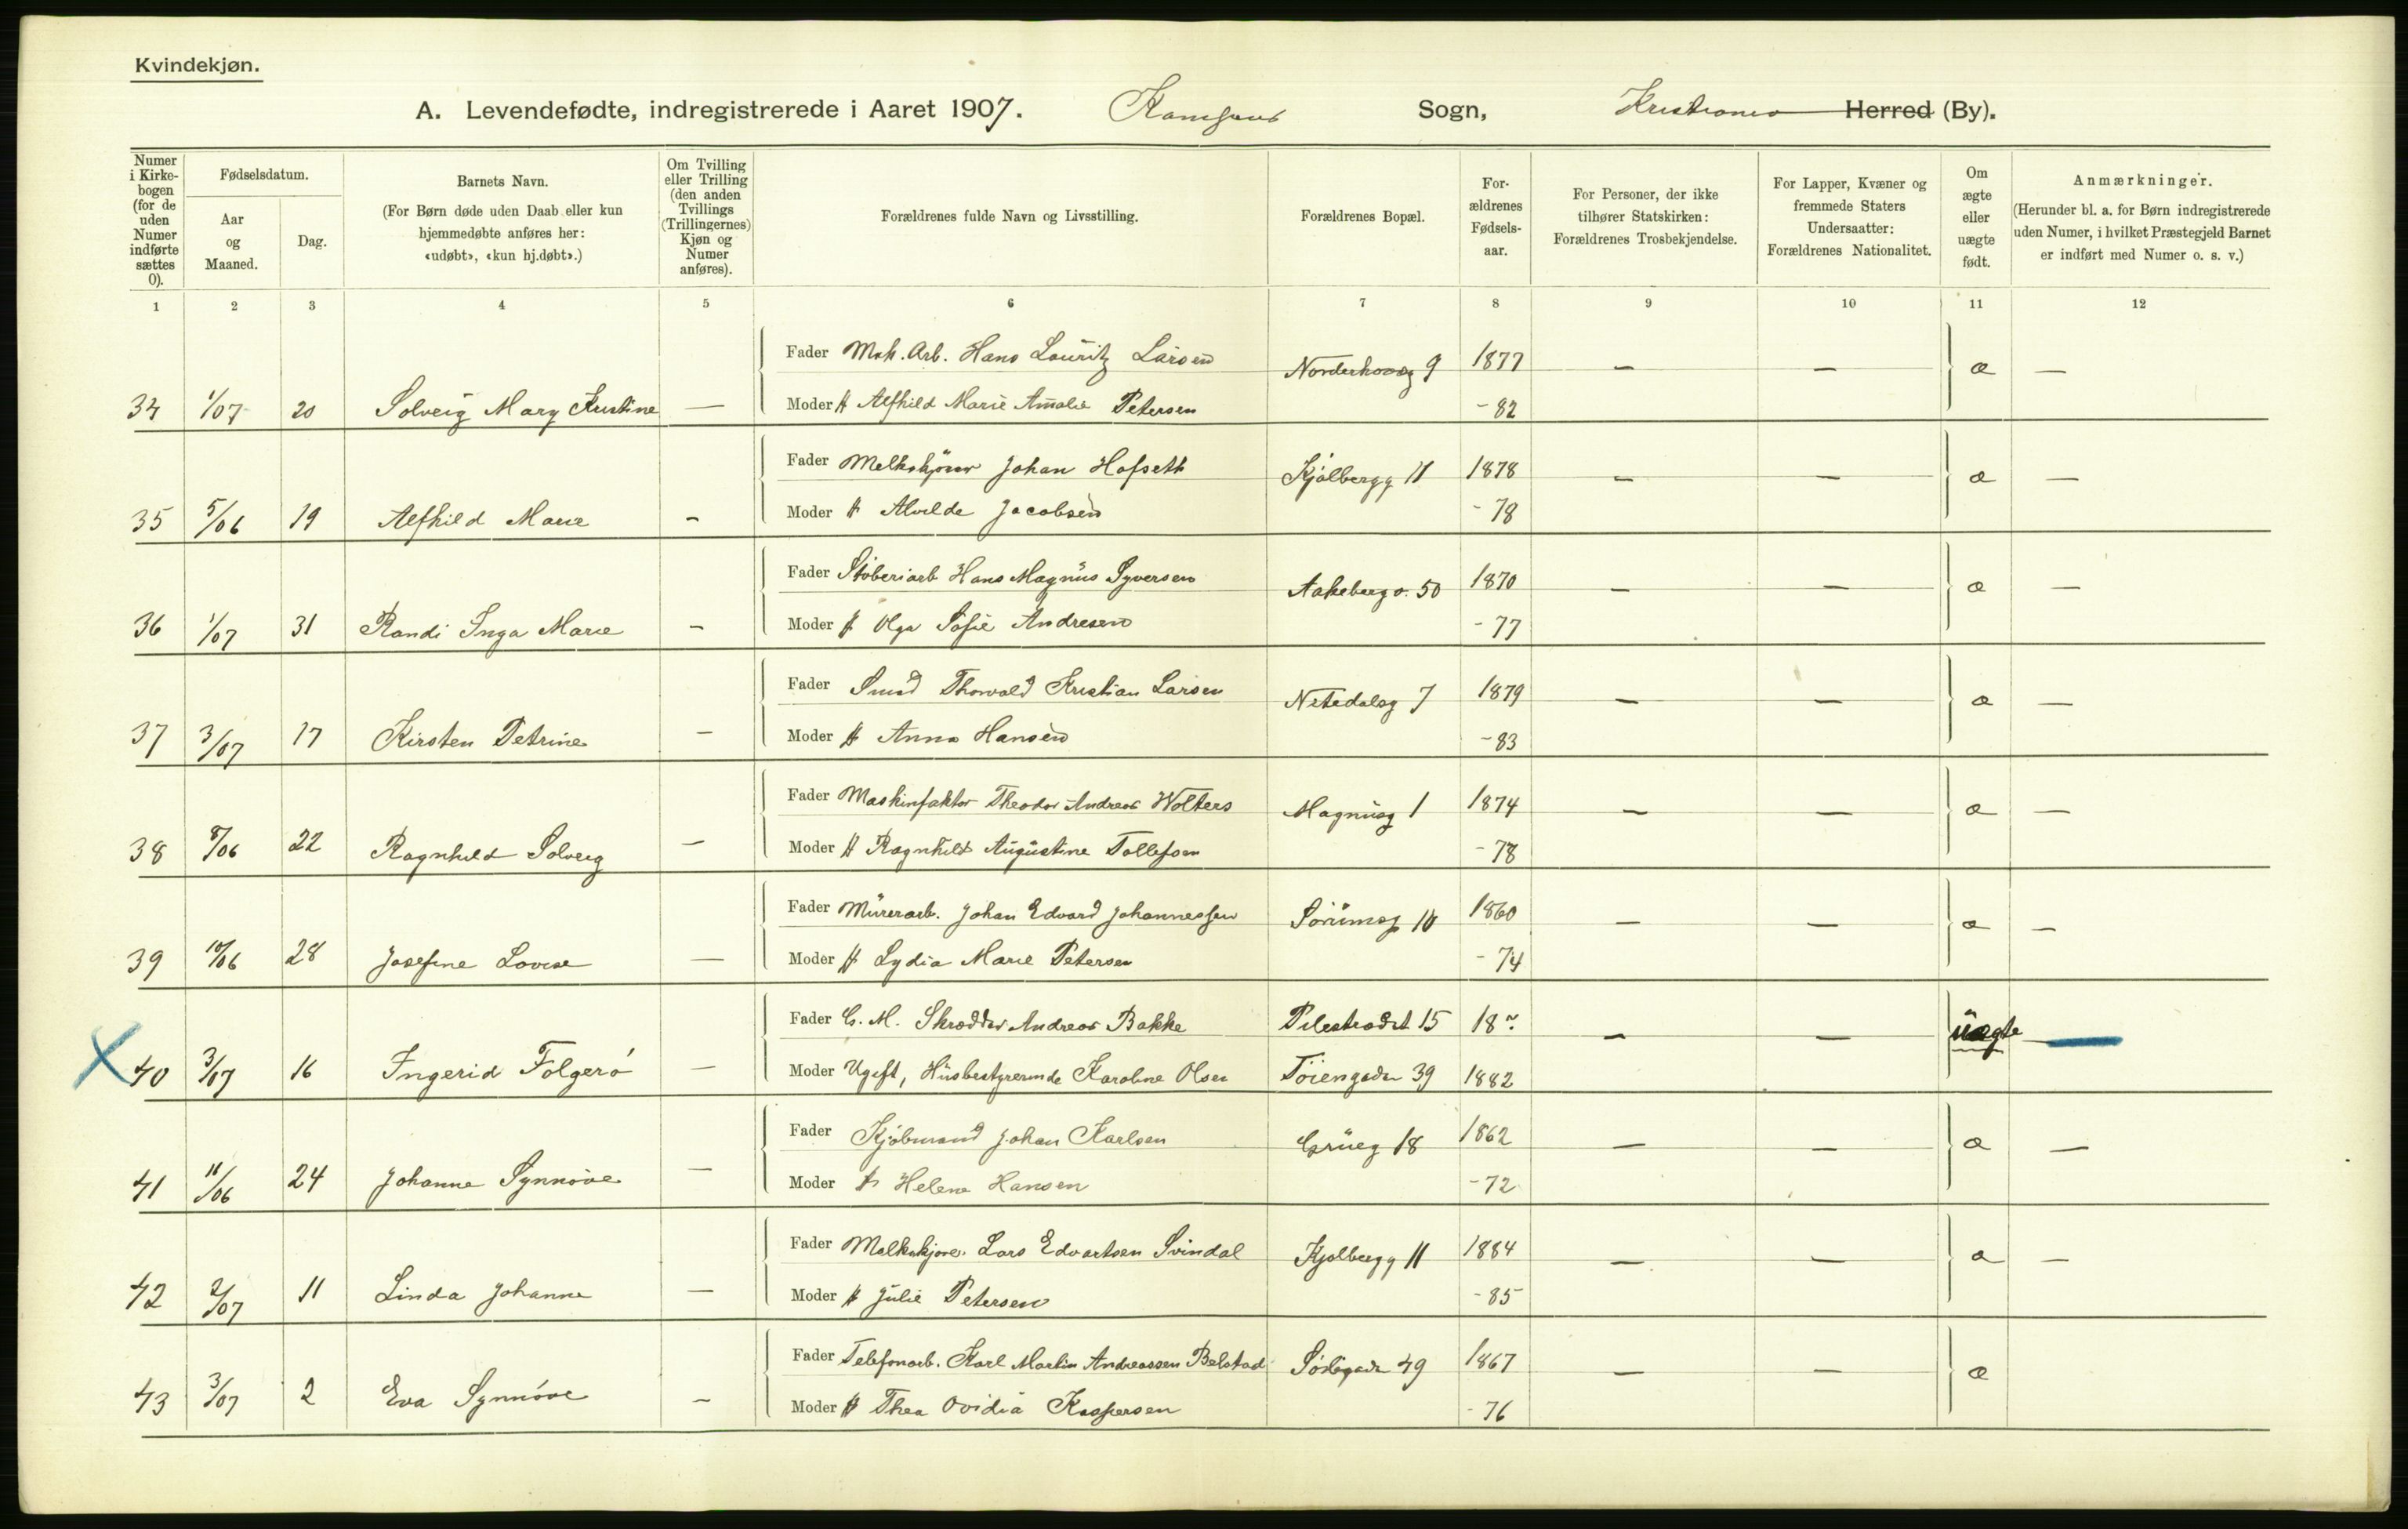 Kvindekjøn.
A. Levendefødte, indregistrerede i Aaret 1907. Kampens Sogn, Kristiania Herred (By).
Numer i Kirkebogen (for de uden Numer indførte sættes 0).
Fødselsdatum.
Aar og Maaned.
Dag.
Barnets Navn.
(For Børn døde uden Daab eller kun hjemmedøbte anføres her: «udøbt», «kun hj.døbt».)
Om Tvilling eller Trilling (den anden Tvillings (Trillingernes) Kjøn og Numer anføres).
Forældrenes fulde Navn og Livsstilling.
Forældrenes Bopæl.
Forældrenes Fødselsaar.
For Personer, der ikke tilhører Statskirken: Forældrenes Trosbekjendelse.
For Lapper, Kvæner og fremmede Staters Undersaatter: Forældrenes Nationalitet.
Om ægte eller uægte født.
Anmærkninger.
(Herunder bl. a. for Børn indregistrerede uden Numer, i hvilket Præstegjeld Barnet er indført med Numer o. s. v.)
1 2 3 4 5 6 7 8 9 10 11 12
Fader Mek. Arb. Hans Lauritz Larsen Norderhovsg 9 1877 — — æ —
34 1/07 20 Solveig Mary Kristine — Moder H Alfhild Marie Amalie Petersen - 82
Fader Melkekjører Johan Hofseth Kjølbergg 11 1878 — — æ —
35 5/06 19 Alfhild Marie - Moder H Alvilde Jacobsen - 78
Fader Støberiarb Hans Magnus Syversen Aakebergv. 50 1870 — — æ —
36 1/07 31 Randi Inga Marie - Moder H Olga Sofie Andresen - 77
Fader Smed Thorvald Kristian Larsen Nitedalsg 7 1879 — — æ —
37 3/07 17 Kirsten Petrine — Moder H Anna Hansen - 83
Fader Maskinfaktor Theodor Andreas Wolters Magnusg 1 1874 — — æ —
38 8/06 22 Ragnhild Solveig — Moder H Ragnhild Augustine Tollefsen - 78
Fader Murerarb. Johan Edvard Johannessen Sörumsg 10 1860 — — æ —
39 10/06 28 Josefine Lovise — Moder H Lydia Marie Petersen - 74
Fader G. M. Skrædder Andreas Bakke Pilestrædet 15 18 — — uægte —
40 3/07 16 Ingerid Folgerø — Moder Ugift, Husbestyrerinde Karoline Olsen Töiengaden 39 1882
Fader Kjøbmand Johan Karlsen Grüneg 18 1862 — — æ —
41 11/06 24 Johanne Synnöve — Moder H Helene Hansen - 72
Fader Melkekjøre. Lars Edvartsen Svindal Kjølbergg 11 1884 — — æ —
42 2/07 11 Linda Johanne — Moder H Julie Petersen - 85
Fader Telefonarb. Karl Martin Andreassen Belstad 49 1867 — — æ
43 3/07 2 Eva Synnöve - Moder H Thea Ovidia Kaspersen - 76